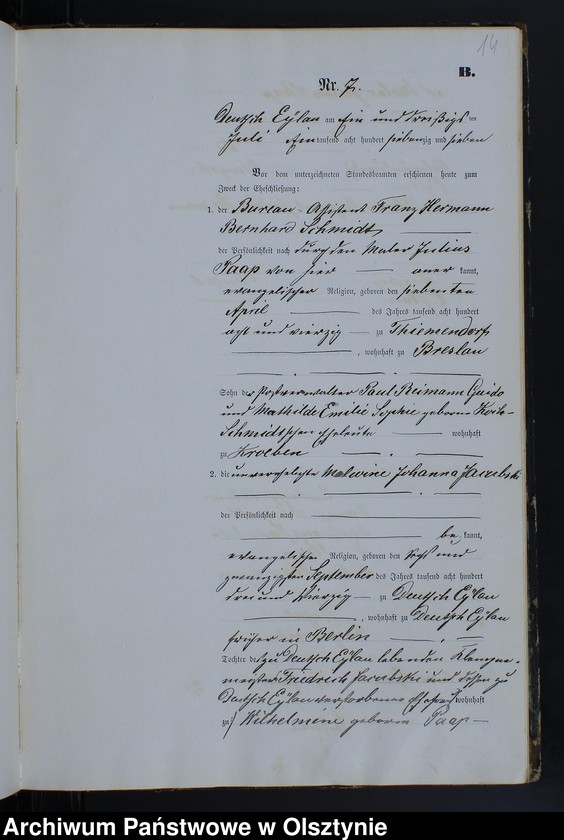 14
B.
Nr. 7.
Deutsch Eylau am Ein und dreißigsten
Juli Ein tausend acht hundert siebenzig und sieben
Vor dem unterzeichneten Standesbeamten erschienen heute zum
Zweck der Eheschließung:
1. der Bureau-Assistent Franz Hermann
Bernhard Schmidt
der Persönlichkeit nach durch den Maler Julius
Paap von hier anerkannt,
evangelischer Religion, geboren den siebenten
April des Jahres tausend acht hundert
acht und vierzig zu Thiemendorf
, wohnhaft zu Breslau
Sohn der Postverwalter Paul Reimann Guido
und Mathilde Emilie Sophie geborne
Schmidtschen Eheleute wohnhaft
zu Kroeben
2. die unverehelichte Malwine Johanna Jacubski
der Persönlichkeit nach
bekannt,
evangelischer Religion, geboren den sechs und
zwanzigsten September des Jahres tausend acht hundert
drei und vierzig zu Deutsch Eylau
, wohnhaft zu Deutsch Eylau
früher in Berlin
Tochter des zu Deutsch Eylau lebenden Klempner-
meister Friedrich Jacubski und dessen zu
Deutsch Eylau verstorbenen Ehefrau wohnhaft
zu Wilhelmine geborne Paap
Archiwum Państwowe w Olsztynie